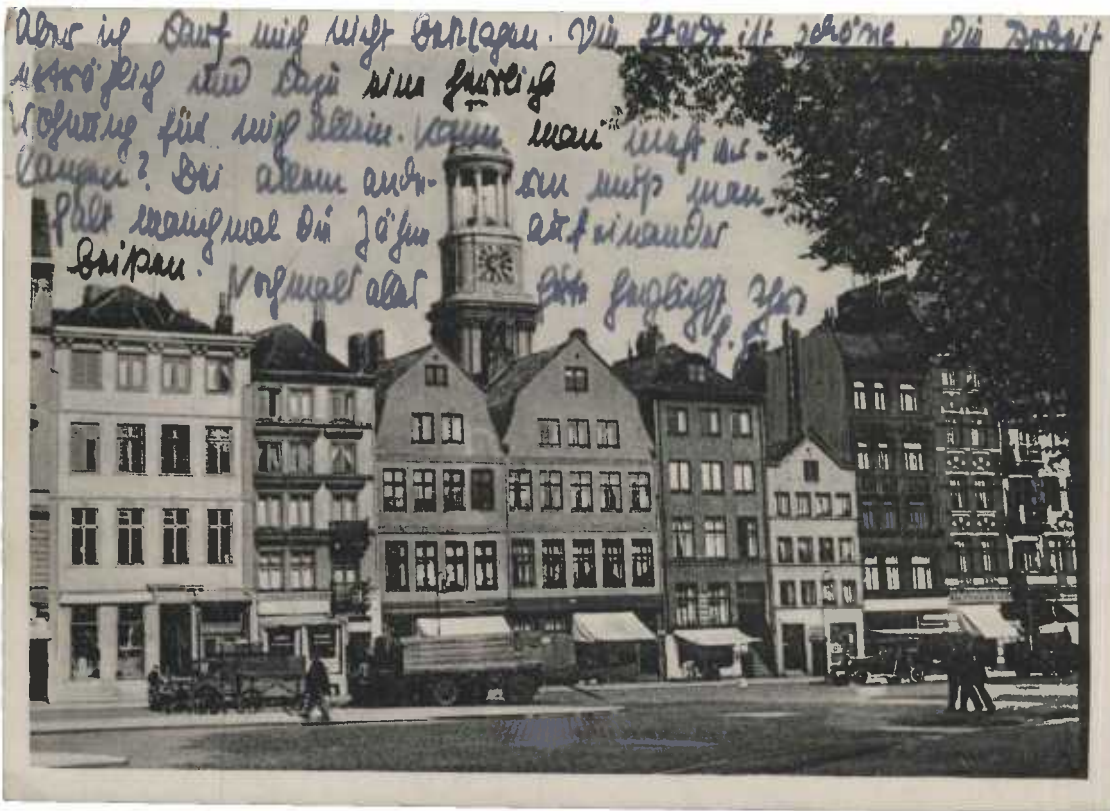 Aber ich darf mich nicht beklagen. Die Stadt ist schöne. Die Arbeit
erträglich und dazu eine herrliche
Wohnung für mich allein. Kann man mehr ver-
langen? Bei allem andern muß man
halt manchmal die Zähne aufeinander
beißen.
Nochmals alles Gute herzlichst Ihr